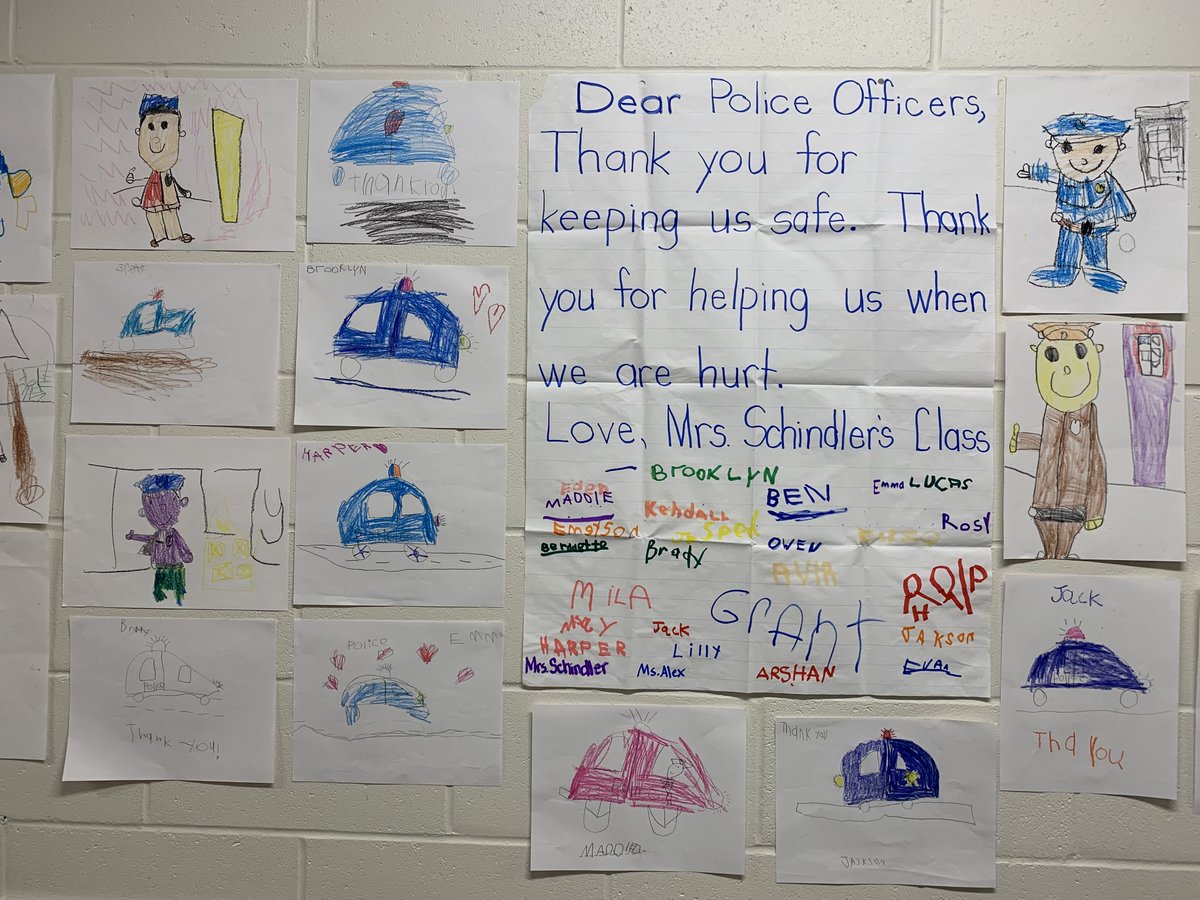 Dear Police Officers,
Thank you for
keeping us safe. Thank
you for helping us when
we are hurt.
Love, Mrs. Schindler's Class
BROOKLYN
Emma LUCAS
MADDIE
Kendall
BEN
ROSY
Emerson
Brady
OVEN
MILA
GrANt
HARPER
Jack
Lilly
JAKSON
Mrs. Schindler
Ms. Alex
ARSHAN
EVAN
thank you!
BROOKLYN
HARPER
Brady
Police
Thank you!
POLICE
EMMA
MADDIE
Thank you
JAckson
Jack
POLICE
Tha you